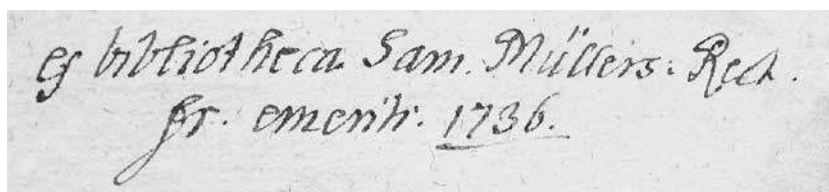 ex bibliotheca Sam. Müllers: Rect.
fr. emerit: 1736.